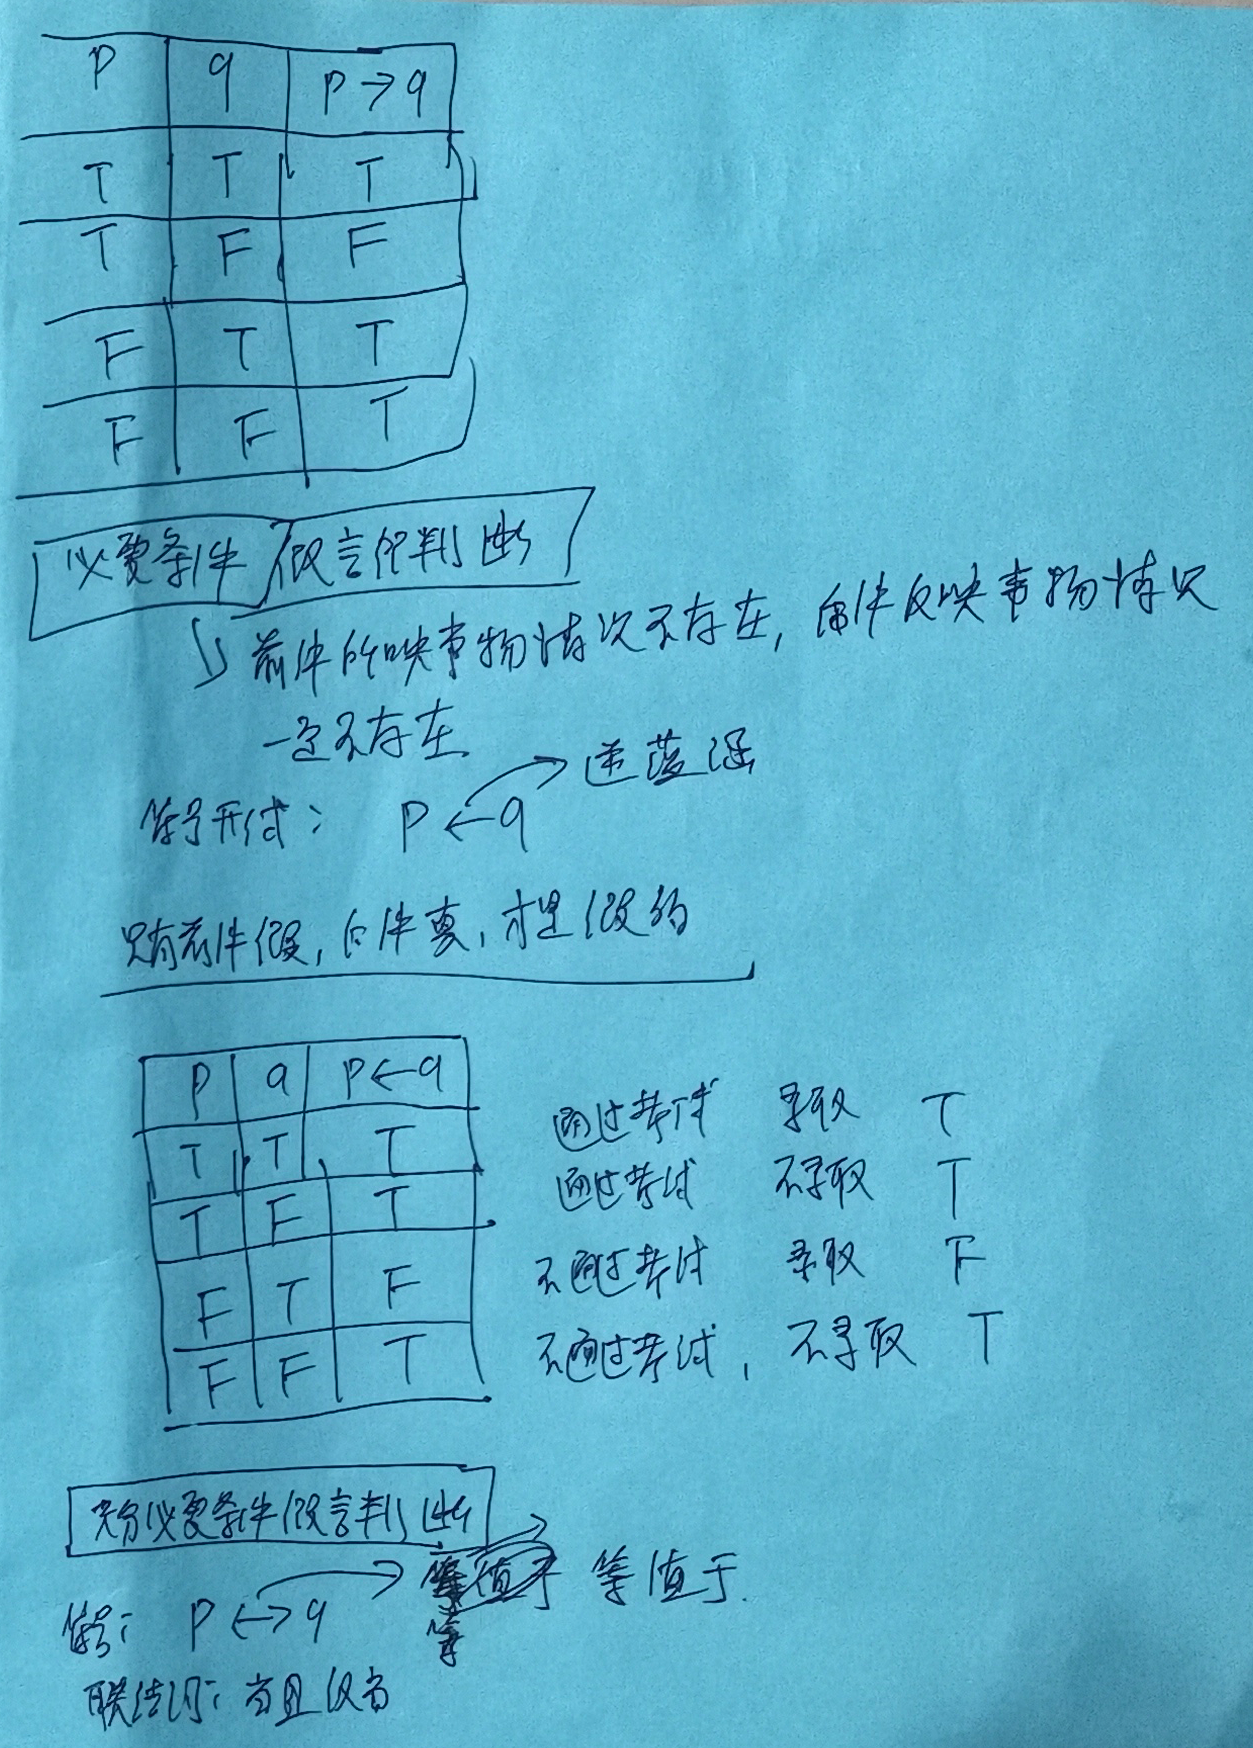 P q P→q
T T T
T F F
F T T
F F T
必要条件 假言判断
前件所映事物情况不存在, 后件反映事物情况
一定不存在
逆蕴涵
符号形式: P←q
只有前件假, 后件真, 才是假的
P q P←q
T T T 通过考试 录取 T
T F T 通过考试 不录取 T
F T F 不通过考试 录取 F
F F T 不通过考试, 不录取 T
充分必要条件假言判断
符号: P↔q 等值于
联结词: 当且仅当